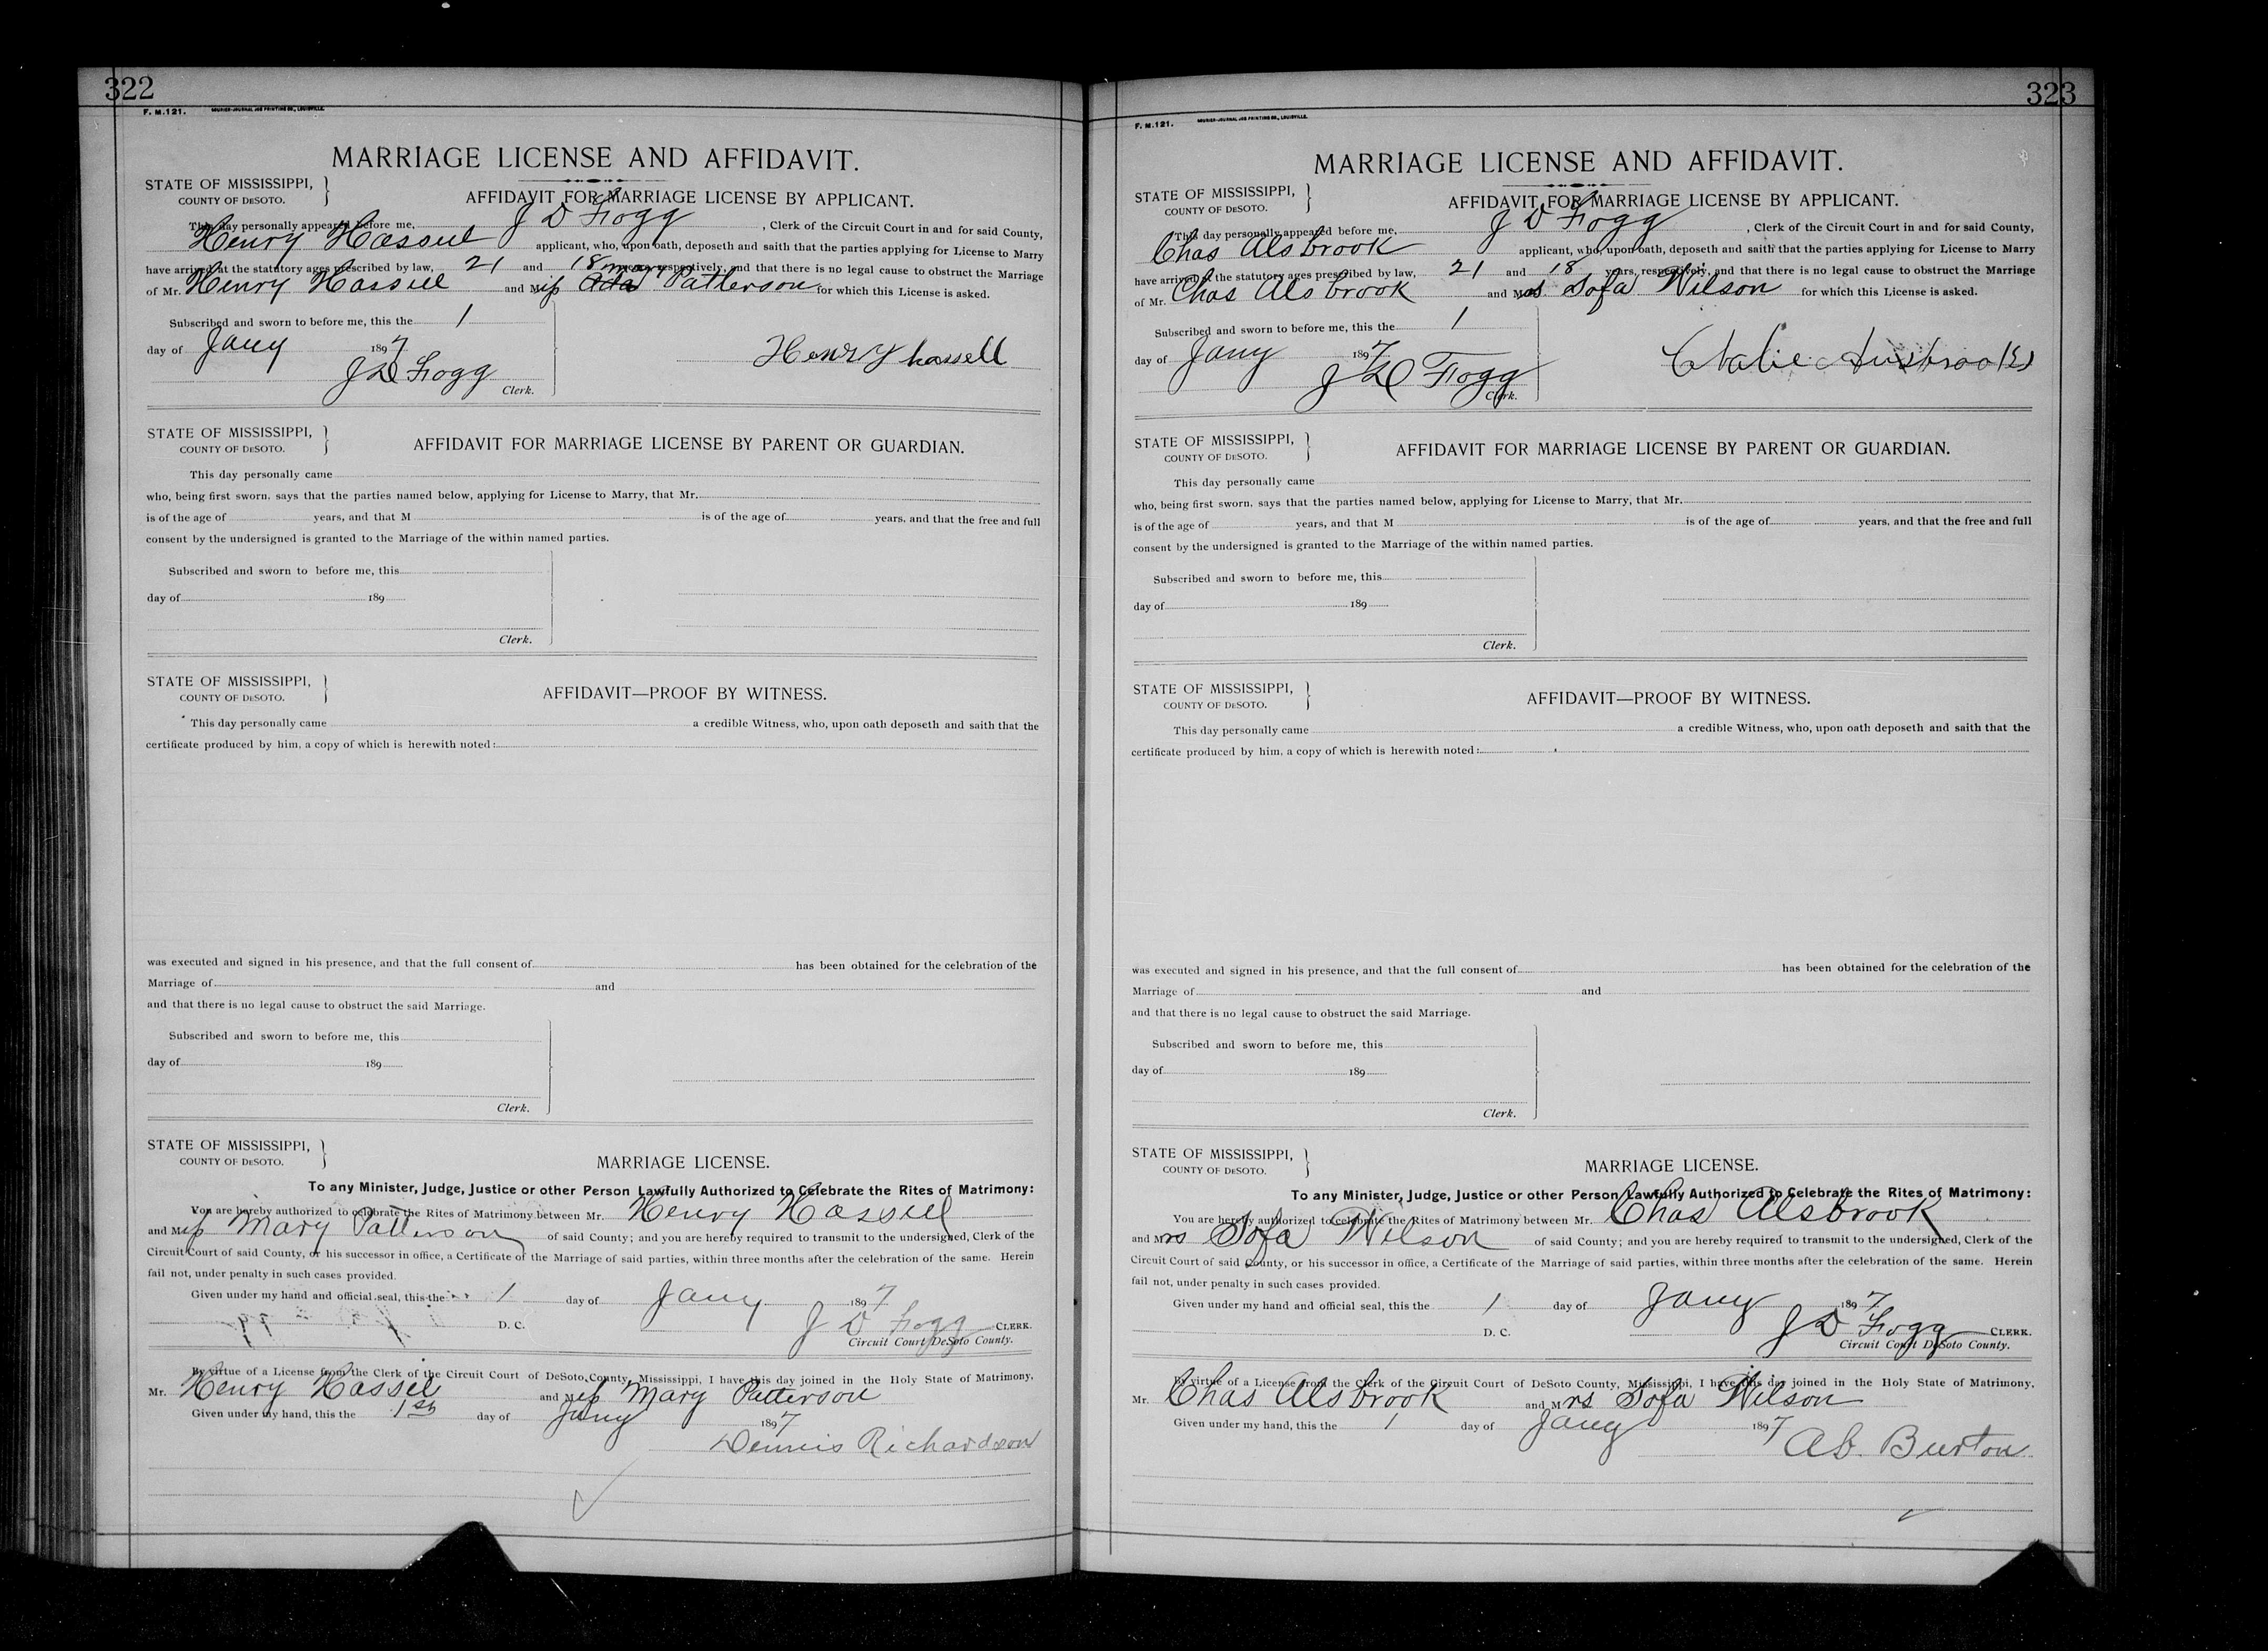 322
F. M. 121. COURIER-JOURNAL JOB PRINTING CO., LOUISVILLE.
MARRIAGE LICENSE AND AFFIDAVIT.
STATE OF MISSISSIPPI,
COUNTY OF DESOTO.
AFFIDAVIT FOR MARRIAGE LICENSE BY APPLICANT.
This day personally appeared before me, J D Fogg, Clerk of the Circuit Court in and for said County,
Henry Hassell applicant, who, upon oath, deposeth and saith that the parties applying for License to Marry
have arrived at the statutory ages prescribed by law, 21 and 18 years, respectively, and that there is no legal cause to obstruct the Marriage
of Mr. Henry Hassell and Miss Mary Patterson for which this License is asked.
Subscribed and sworn to before me, this the 1
day of Jany 1897
J D Fogg
Clerk.
Henry hassell
STATE OF MISSISSIPPI,
COUNTY OF DESOTO.
AFFIDAVIT FOR MARRIAGE LICENSE BY PARENT OR GUARDIAN.
This day personally came
who, being first sworn, says that the parties named below, applying for License to Marry, that Mr.
is of the age of years, and that M is of the age of years, and that the free and full
consent by the undersigned is granted to the Marriage of the within named parties.
Subscribed and sworn to before me, this
day of 189
Clerk.
STATE OF MISSISSIPPI,
COUNTY OF DESOTO.
AFFIDAVIT—PROOF BY WITNESS.
This day personally came a credible Witness, who, upon oath deposeth and saith that the
certificate produced by him, a copy of which is herewith noted:
was executed and signed in his presence, and that the full consent of has been obtained for the celebration of the
Marriage of and
and that there is no legal cause to obstruct the said Marriage.
Subscribed and sworn to before me, this
day of 189
Clerk.
STATE OF MISSISSIPPI,
COUNTY OF DESOTO.
MARRIAGE LICENSE.
To any Minister, Judge, Justice or other Person Lawfully Authorized to Celebrate the Rites of Matrimony:
You are hereby authorized to celebrate the Rites of Matrimony between Mr. Henry Hassell
and Miss Mary Patterson of said County; and you are hereby required to transmit to the undersigned, Clerk of the
Circuit Court of said County, or his successor in office, a Certificate of the Marriage of said parties, within three months after the celebration of the same. Herein
fail not, under penalty in such cases provided.
Given under my hand and official seal, this the 1 day of Jany 1897
D. C. J D Fogg CLERK.
Circuit Court DeSoto County.
By virtue of a License from the Clerk of the Circuit Court of DeSoto County, Mississippi, I have this day joined in the Holy State of Matrimony,
Mr. Henry Hassel and Miss Mary Patterson
Given under my hand, this the 1st day of Jany 1897
Dennis Richardson
323
F. M. 121. COURIER-JOURNAL JOB PRINTING CO., LOUISVILLE.
MARRIAGE LICENSE AND AFFIDAVIT.
STATE OF MISSISSIPPI,
COUNTY OF DESOTO.
AFFIDAVIT FOR MARRIAGE LICENSE BY APPLICANT.
This day personally appeared before me, J D Fogg, Clerk of the Circuit Court in and for said County,
Chas Alsbrook applicant, who, upon oath, deposeth and saith that the parties applying for License to Marry
have arrived at the statutory ages prescribed by law, 21 and 18 years, respectively, and that there is no legal cause to obstruct the Marriage
of Mr. Chas Alsbrook and Mrs Sofa Wilson for which this License is asked.
Subscribed and sworn to before me, this the 1
day of Jany 1897
J D Fogg
Clerk.
STATE OF MISSISSIPPI,
COUNTY OF DESOTO.
AFFIDAVIT FOR MARRIAGE LICENSE BY PARENT OR GUARDIAN.
This day personally came
who, being first sworn, says that the parties named below, applying for License to Marry, that Mr.
is of the age of years, and that M is of the age of years, and that the free and full
consent by the undersigned is granted to the Marriage of the within named parties.
Subscribed and sworn to before me, this
day of 189
Clerk.
STATE OF MISSISSIPPI,
COUNTY OF DESOTO.
AFFIDAVIT—PROOF BY WITNESS.
This day personally came a credible Witness, who, upon oath deposeth and saith that the
certificate produced by him, a copy of which is herewith noted:
was executed and signed in his presence, and that the full consent of has been obtained for the celebration of the
Marriage of and
and that there is no legal cause to obstruct the said Marriage.
Subscribed and sworn to before me, this
day of 189
Clerk.
STATE OF MISSISSIPPI,
COUNTY OF DESOTO.
MARRIAGE LICENSE.
To any Minister, Judge, Justice or other Person Lawfully Authorized to Celebrate the Rites of Matrimony:
You are hereby authorized to celebrate the Rites of Matrimony between Mr. Chas Alsbrook
and Mrs Sofa Wilson of said County; and you are hereby required to transmit to the undersigned, Clerk of the
Circuit Court of said County, or his successor in office, a Certificate of the Marriage of said parties, within three months after the celebration of the same. Herein
fail not, under penalty in such cases provided.
Given under my hand and official seal, this the 1 day of Jany 1897
D. C. J D Fogg CLERK.
Circuit Court DeSoto County.
By virtue of a License from the Clerk of the Circuit Court of DeSoto County, Mississippi, I have this day joined in the Holy State of Matrimony,
Mr. Chas Alsbrook and Mrs Sofa Wilson
Given under my hand, this the 1 day of Jany 1897
Ab Burton